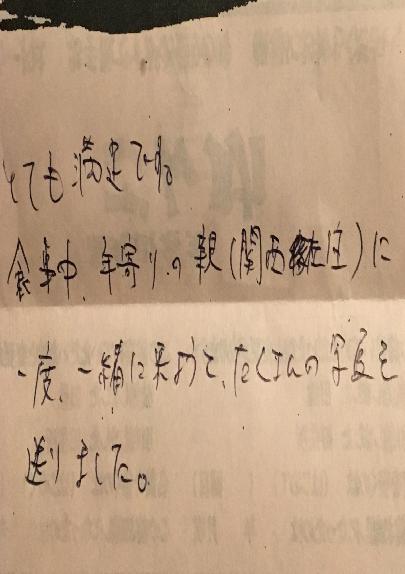 とても満足です。
食事中、年寄りの親(関西在住)に
一度、一緒に来ようと、たくさんの写真を
送りました。